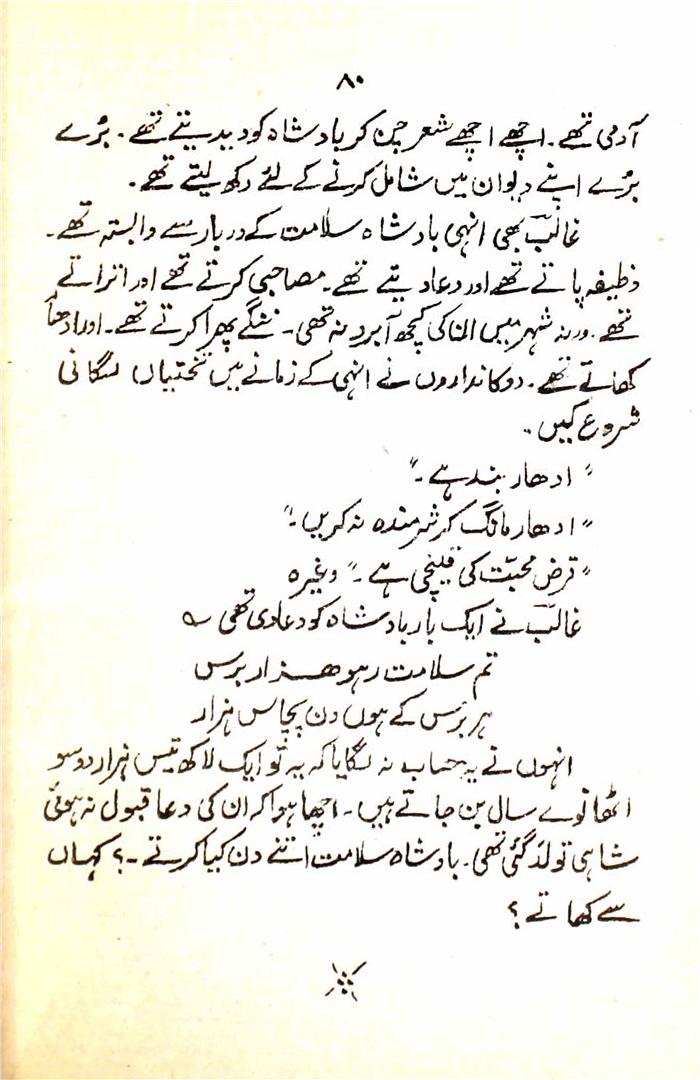 ۸۰
آدمی تھے۔ اچھے اچھے شعر چن کر بادشاہ کو دیدیتے تھے۔ بُرے
بُرے اپنے دیوان میں شامل کرنے کے لئے رکھ لیتے تھے۔
غالبؔ بھی انہی بادشاہ سلامت کے دربار سے وابستہ تھے۔
وظیفہ پاتے تھے اور دعا دیتے تھے۔ مصاحبی کرتے تھے اور اتراتے
تھے۔ ورنہ شہر میں ان کی کچھ آبرو نہ تھی۔ ننگے پھرا کرتے تھے۔ اور ادھار
کھاتے تھے۔ دوکانداروں نے انہی کے زمانے میں تختیاں لگانی
شروع کیں۔
"ادھار بند ہے۔"
"ادھار مانگ کر شرمندہ نہ کریں۔"
"قرض محبّت کی قینچی ہے۔" وغیرہ
غالبؔ نے ایک بار بادشاہ کو دعا دی تھی ؎
تم سلامت رہو ھزار برس
ہر برس کے ہوں دن پچاس ہزار
انہوں نے یہ حساب نہ لگایا کہ یہ تو ایک لاکھ تیس ہزار دو سو
اٹھانوے سال بن جاتے ہیں۔ اچھا ہوا کہ ان کی دعا قبول نہ ہوئی
شاہی تو لد گئی تھی۔ بادشاہ سلامت اتنے دن کیا کرتے۔؟ کہاں
سے کھاتے؟